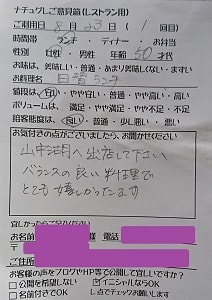 ナチュグルご意見箱(レストラン用)
ご利用日 8月23日 (1回目)
時間帯 ランチ・ディナー・お弁当
性別 女性・男性 年齢 50才代
お味は 美味しい・普通・あまり美味しくない・まずい
お料理名 日替ランチ
値段は 安い・やや安い・普通・やや高い・高い
ボリュームは、満足・やや満足・やや不足・不足
接客態度は、良い・普通・少し悪い・悪い
お気付きの点がございましたら、お聞かせください
山中湖へ出店して下さい
バランスの良い料理で
とても嬉しかったです
宜しかったらご記入ください
お名前 様 電話
〒
ご住所
お客様の声をブログやHP等で公開して宜しいですか?
□公開を希望しない ☑イニシャルならOK
□名前付きでOK レ点でチェックお願いします